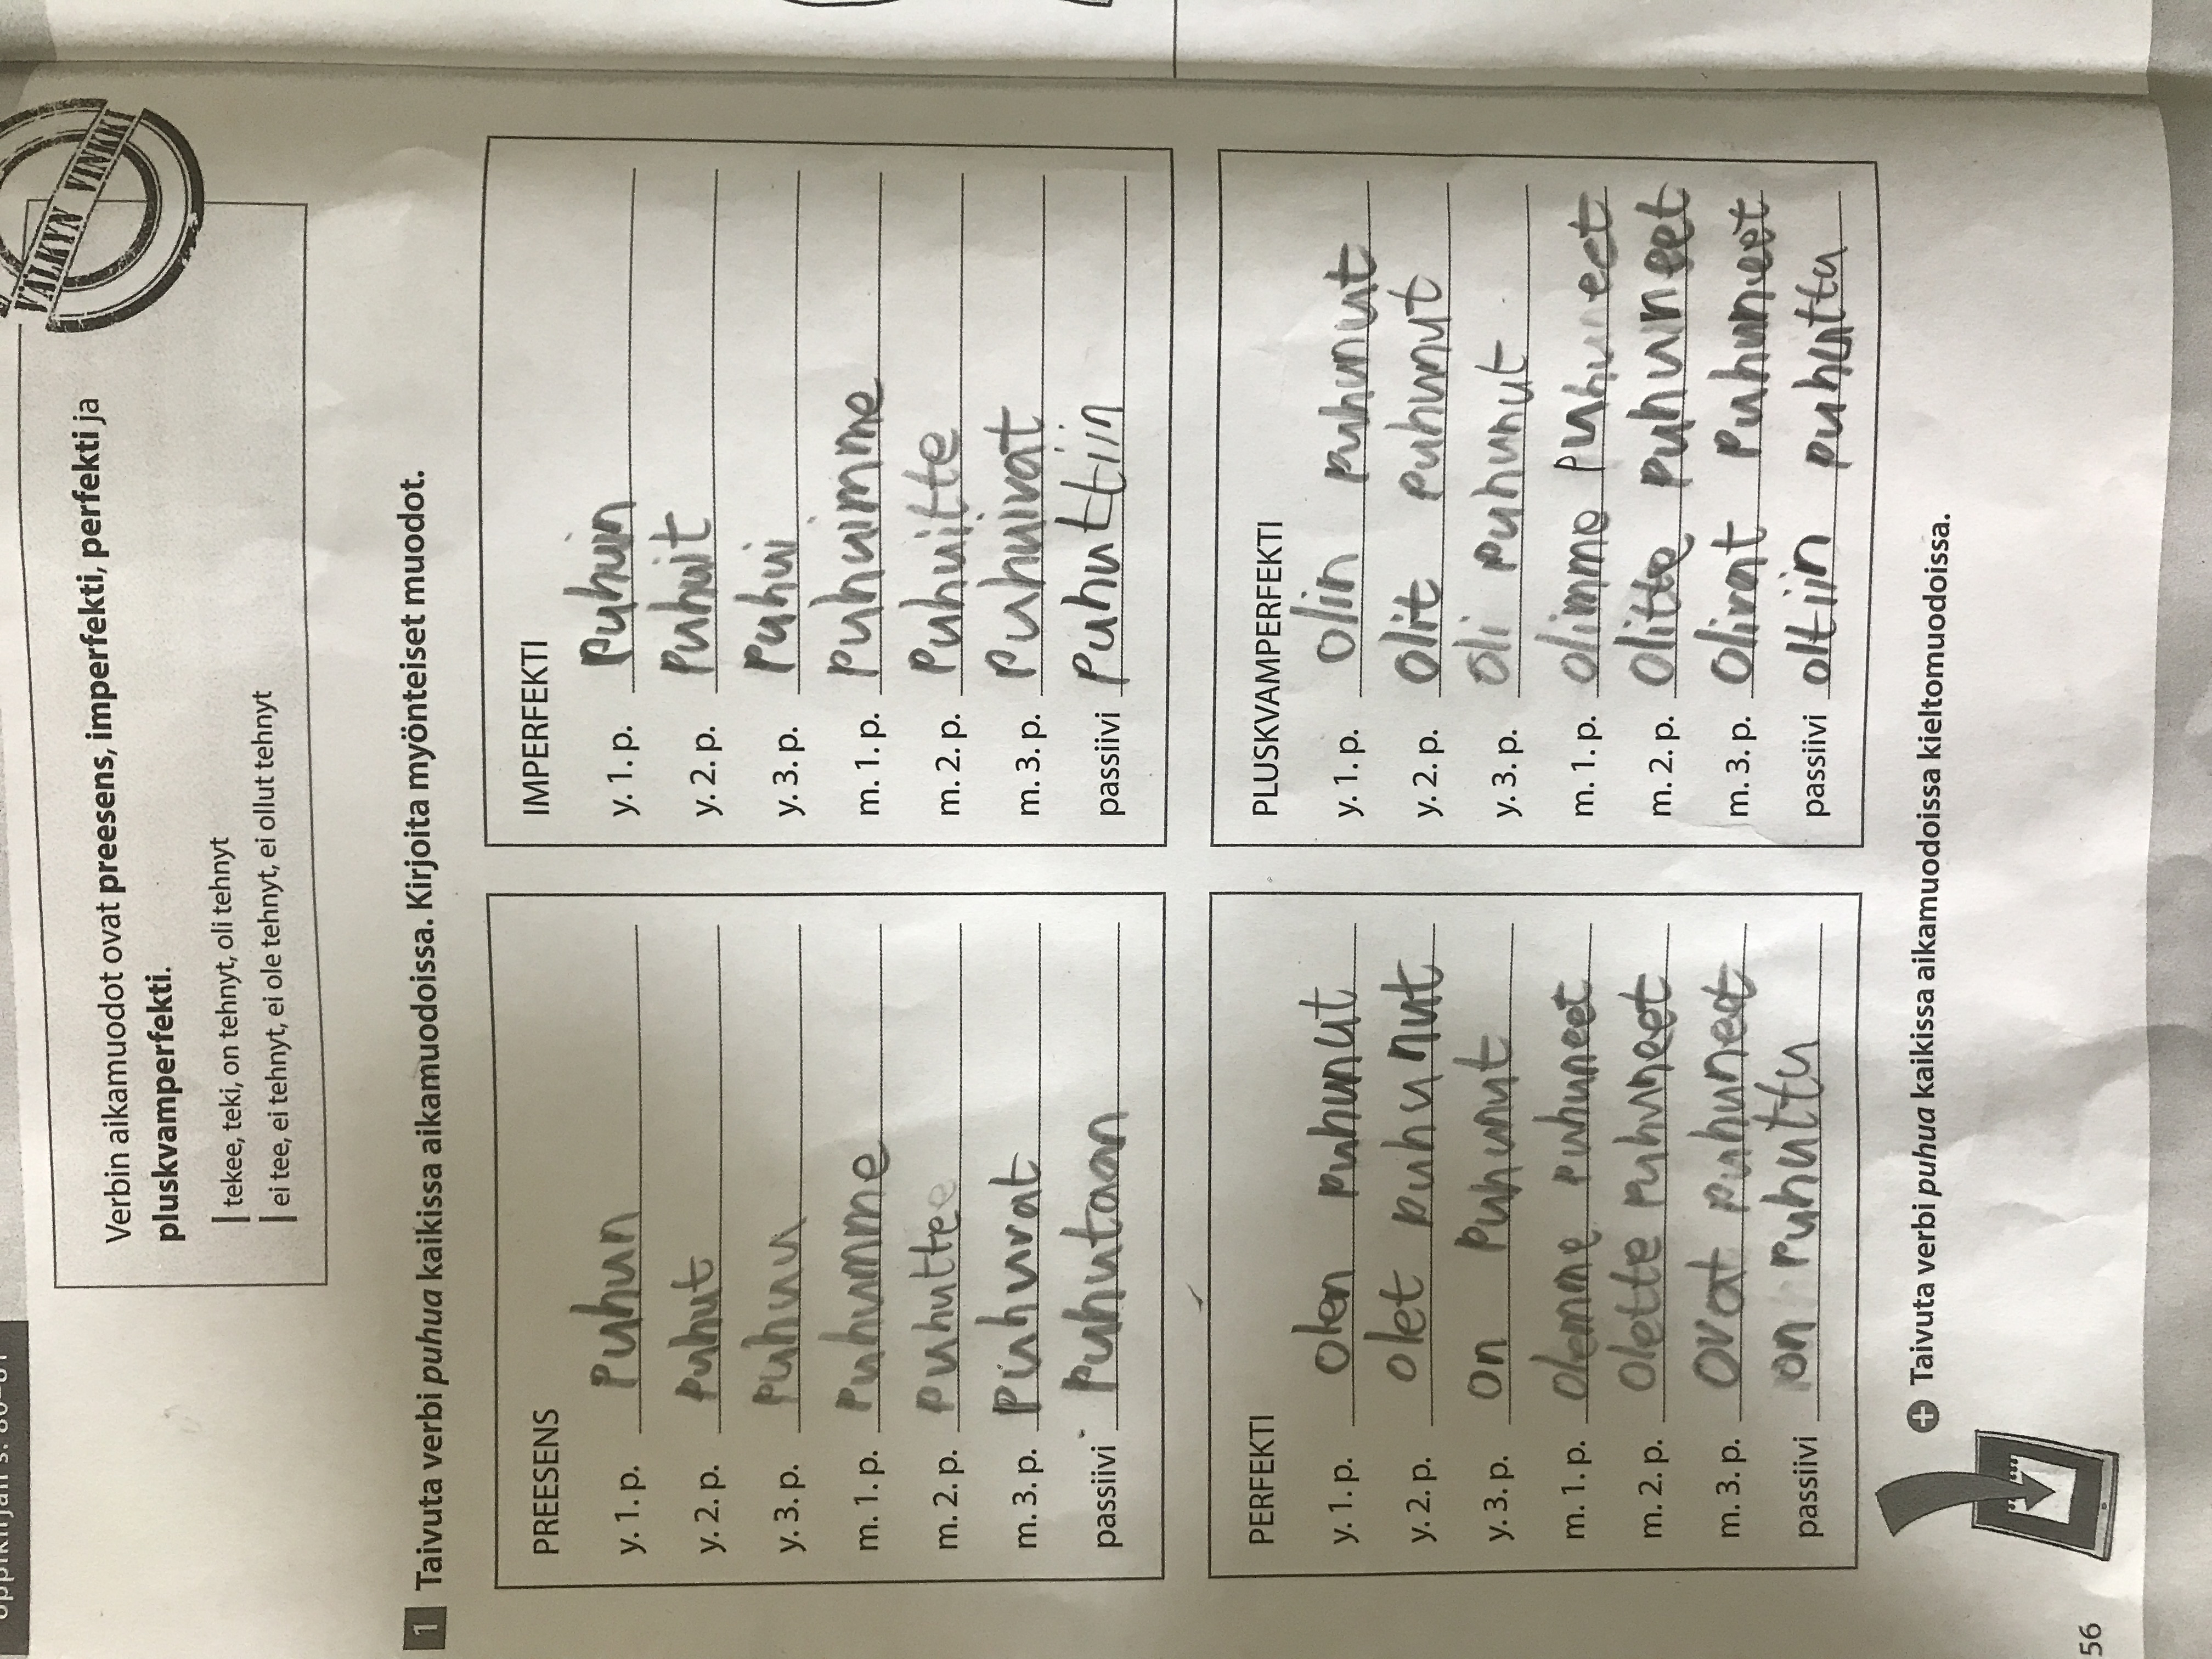 VÄLKYN VINKKI
Verbin aikamuodot ovat preesens, imperfekti, perfekti ja
pluskvamperfekti.
tekee, teki, on tehnyt, oli tehnyt
ei tee, ei tehnyt, ei ole tehnyt, ei ollut tehnyt
1 Taivuta verbi puhua kaikissa aikamuodoissa. Kirjoita myönteiset muodot.
PREESENS
y. 1. p. Puhun
y. 2. p. Puhut
y. 3. p. Puhuu
m. 1. p. Puhumme
m. 2. p. Puhutte
m. 3. p. Puhuvat
passiivi Puhutaan
IMPERFEKTI
y. 1. p. Puhuin
y. 2. p. Puhuit
y. 3. p. Puhui
m. 1. p. Puhuimme
m. 2. p. Puhuitte
m. 3. p. Puhuivat
passiivi Puhuttiin
PERFEKTI
y. 1. p. Olen puhunut
y. 2. p. Olet puhunut
y. 3. p. On puhunut
m. 1. p. Olemme puhuneet
m. 2. p. Olette puhuneet
m. 3. p. Ovat puhuneet
passiivi on puhuttu
PLUSKVAMPERFEKTI
y. 1. p. Olin puhunut
y. 2. p. Olit puhunut
y. 3. p. Oli puhunut
m. 1. p. Olimme puhuneet
m. 2. p. Olitte puhuneet
m. 3. p. Olivat puhuneet
passiivi oltiin puhuttu
+ Taivuta verbi puhua kaikissa aikamuodoissa kieltomuodoissa.
56